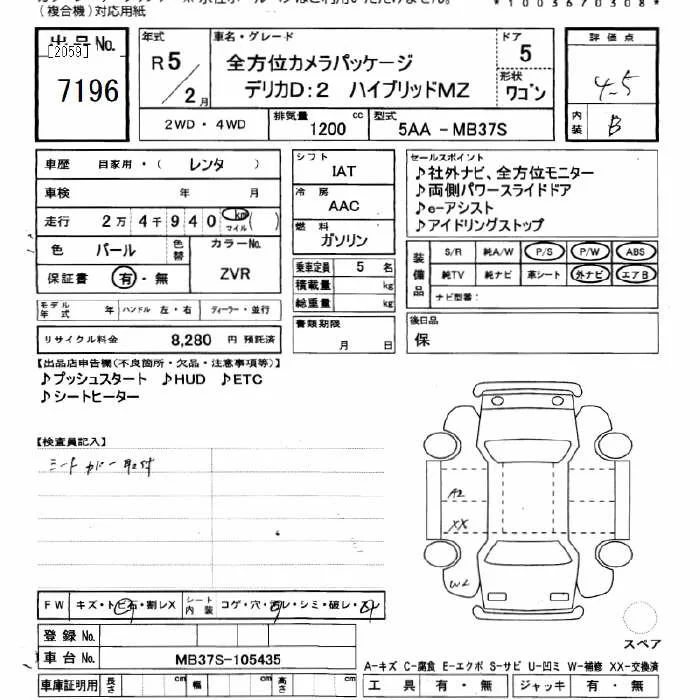 (複合機)対応用紙
*1003670308*
出品No.
[2059]
7196
年式
R5/2月
車名・グレード
全方位カメラパッケージ
デリカD:2 ハイブリッドMZ
ドア
5
形状
ワゴン
評価点
4.5
内装
B
2WD・4WD
排気量
1200 cc
型式
5AA-MB37S
車歴 自家用・( レンタ )
車検 年 月
走行 2万4千940 km マイル ( )
色 パール
色替
カラーNo.
ZVR
保証書 有・無
モデル年式 年
ハンドル 左・右
ディーラー・並行
リサイクル料金 8,280 円 預託済
シフト
IAT
冷房
AAC
燃料
ガソリン
乗車定員 5 名
積載量 kg
総重量 kg
書類期限
月 日
セールスポイント
♪社外ナビ、全方位モニター
♪両側パワースライドドア
♪e-アシスト
♪アイドリングストップ
装備品
S/R 純A/W P/S P/W ABS
純TV 純ナビ 車シート 外ナビ エアB
ナビ型番:
後日品
保
【出品店申告欄(不良箇所・欠品・注意事項等)】
♪プッシュスタート ♪HUD ♪ETC
♪シートヒーター
【検査員記入】
シートカバー取付
A2
XX
W2
FW キズ・トビ石・割レX
シート内装 コゲ・穴・汚レ・シミ・破レ・スレ
登録No.
車台No. MB37S-105435
車庫証明用 長さ cm 幅 cm 高さ cm
スペア
A-キズ C-腐食 E-エクボ S-サビ U-凹ミ W-補修 XX-交換済
工具 有・無 ジャッキ 有・無